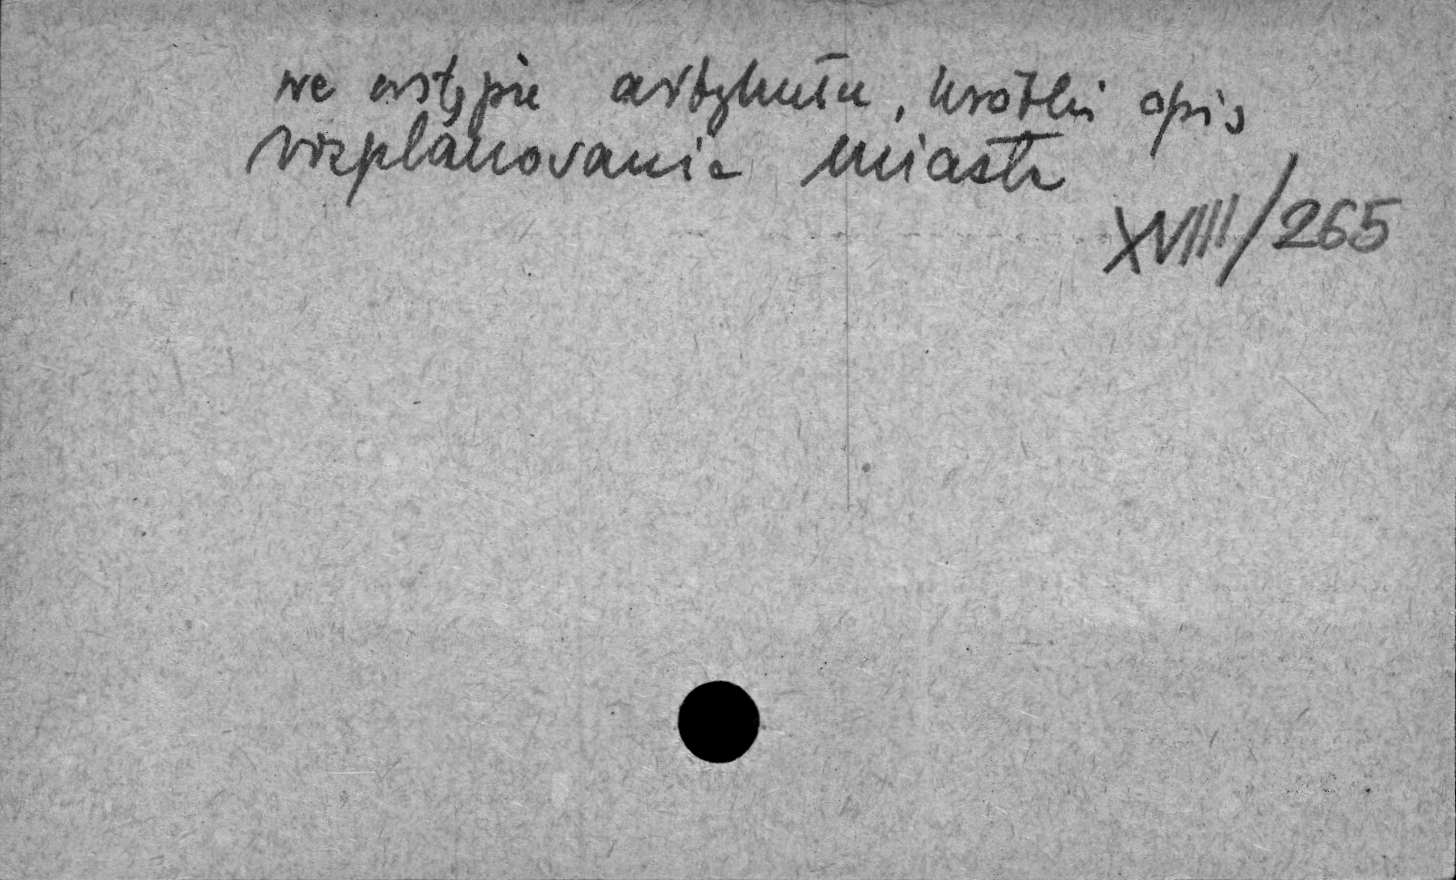 we wstępie artykułu, krótki opis
rozplanowania miasta
XVIII/265